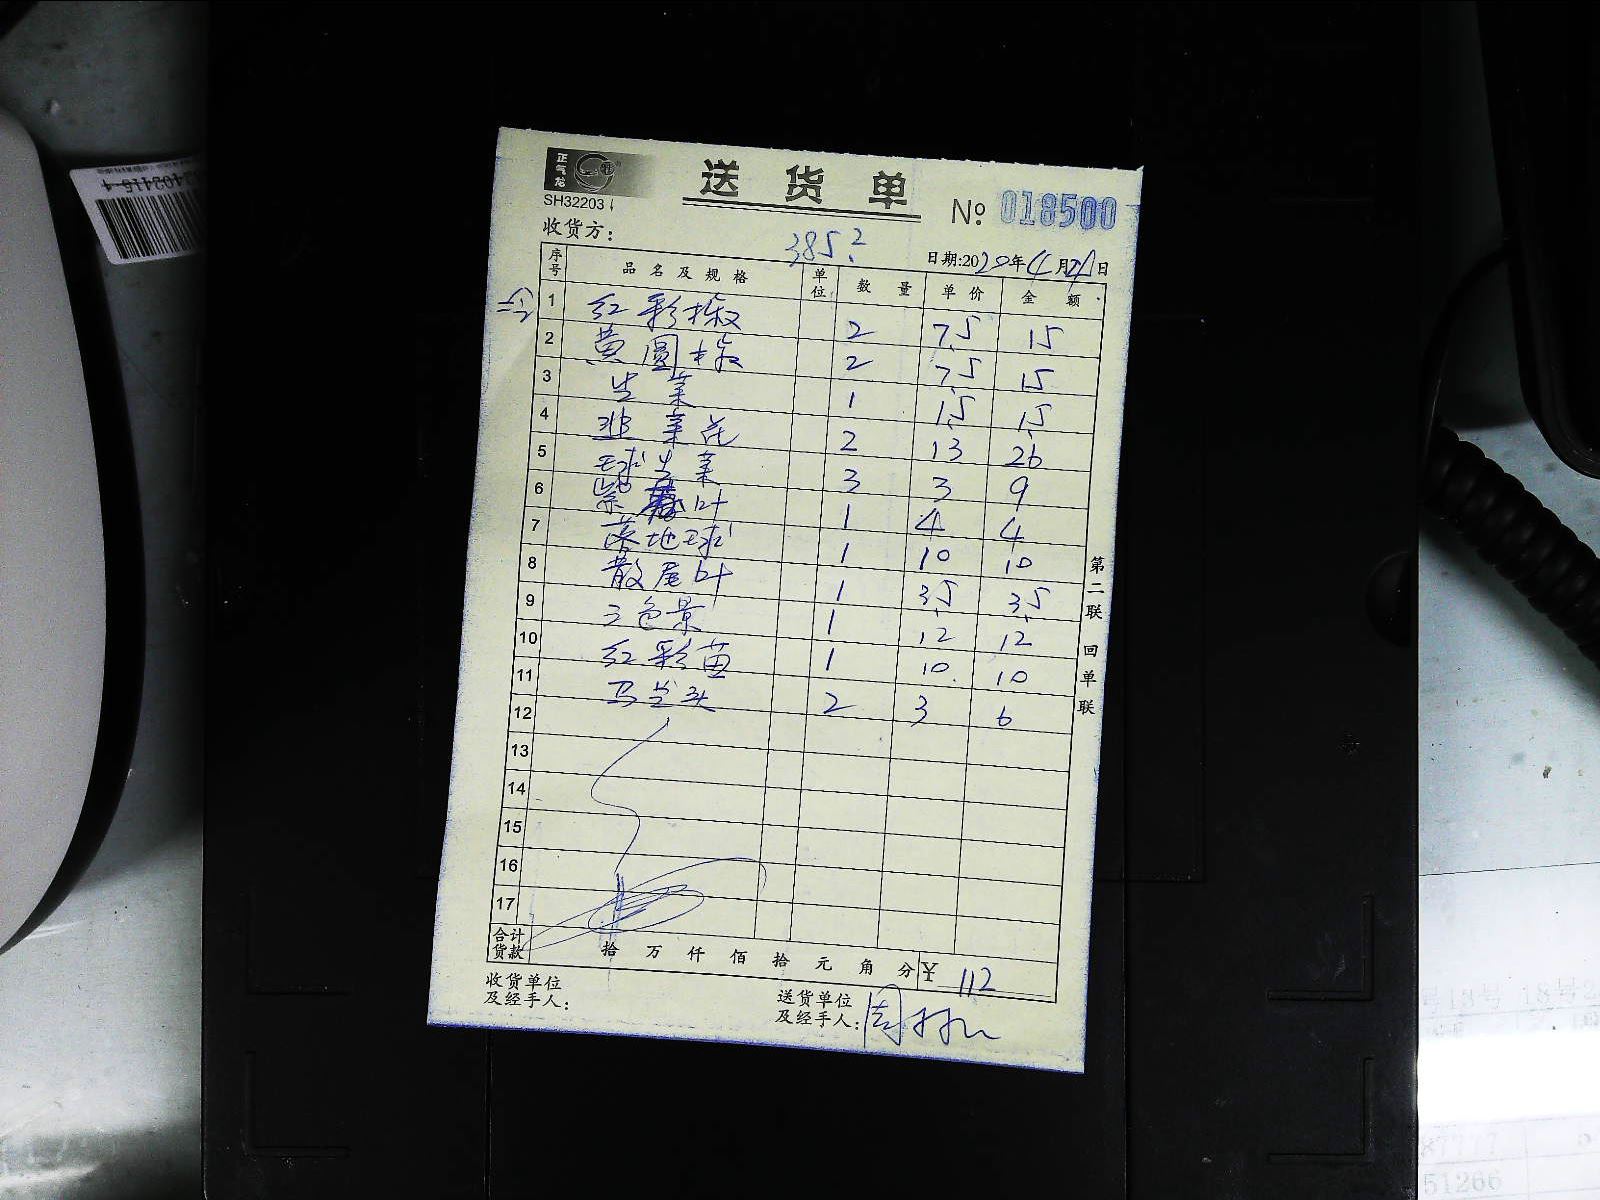 正气龙
SH32203
送货单
№ 018500
收货方:
385.2
日期:2020年4月21日
序号 品名及规格 单位 数量 单价 金额
1 红彩椒 2 7.5 15
2 黄圆椒 2 7.5 15
3 生菜 1 1.5 1.5
4 韭菜花 2 13 26
5 球生菜 3 3 9
6 紫苏叶 1 4 4
7 落地球 1 10 10
8 散尾叶 1 3.5 3.5
9 三色景 1 12 12
10 红彩苗 1 10. 10
11 马兰头 2 3 6
12
13
14
15
16
17
合计货款 拾万仟佰拾元角分 ¥ 112
收货单位及经手人:
送货单位及经手人:
第二联 回单联